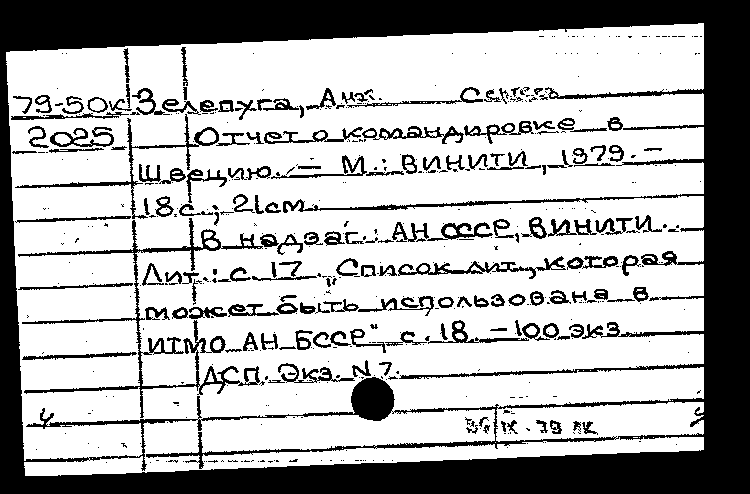 79-50к Зелепуга, Анат. Сергеев
2025 Отчет о командировке в
Швецию. — М.: ВИНИТИ, 1979. —
18 с.; 21 см.
В надзаг.: АН СССР, ВИНИТИ.
Лит.: с. 17. „Список лит., которая
может быть использована в
ИТМО АН БССР", с. 18. — 100 экз.
ДСП. Экз. N 7.